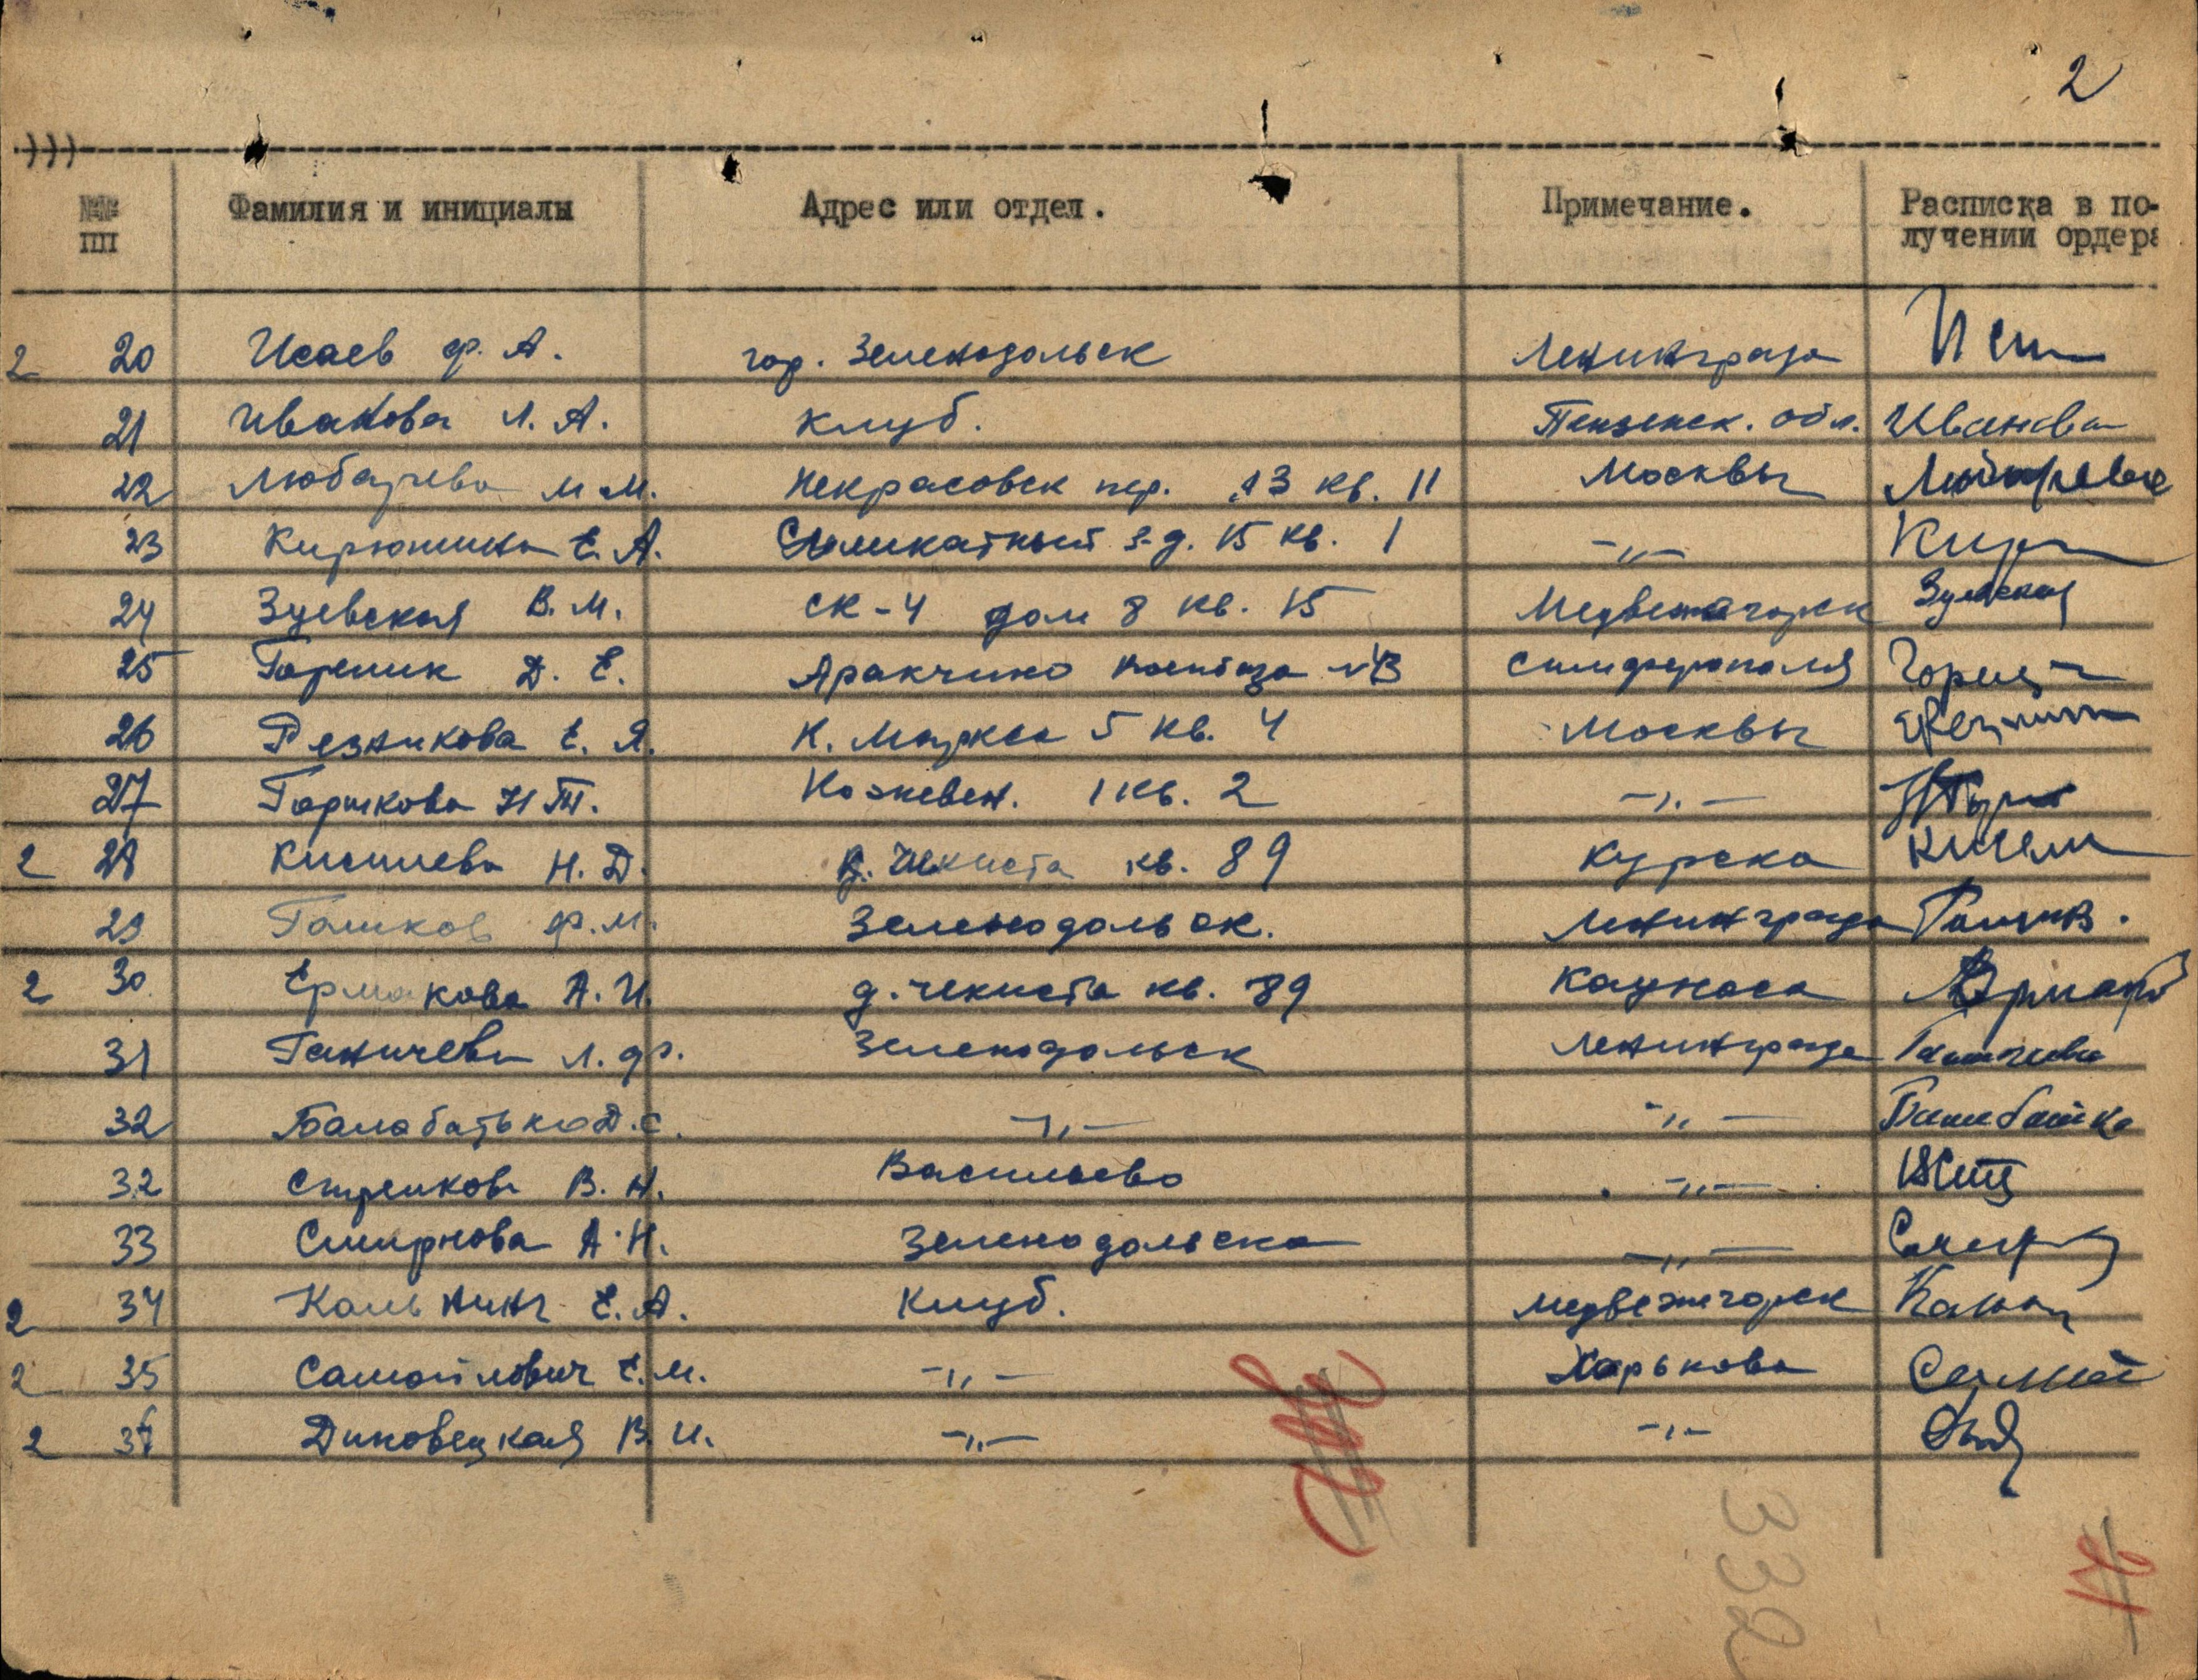 2
№№ Фамилия и инициалы Адрес или отдел. Примечание. Расписка в по-
пп лучении ордера
2 20 Исаев Ф. А. гор. Зеленодольск Ленинграда
21 Иванова Л. А. Клуб. Пензенск. обл. Иванова
22 М.М. Некрасовск пер. 13 кв. 11 Москвы
23 Кирюшина Е. А. Силикатный з-д. 15 кв. 1 -„- Кир
24 Зуевская В. М. СК-4 дом 8 кв. 15 Медвежагорск Зуевская
25 Д. Е. Аракчино №3 Симферополя
26 Резникова Е. Я. К. Маркса 5 кв. 4 Москвы
27 Горшкова Н Т. Кожевен. 1 кв. 2 -„-
2 28 Кисилева Н. Д. д. Чекиста кв. 89 Курска Кисел
29 Гошков Ф. М. Зеленодольск. Ленинграда
2 30 Ермакова А. И. д. чекиста кв. 89 Каунаса
31 Ганичева Л. Ф. Зеленодольск Ленинграда Ганичева
32 Балабатько Д. С. -„- -„-
32 В. Н. Васильево -„-
33 Смирнова А. Н. Зеленодольска -„-
2 34 Е. А. Клуб. Медвежгорск
2 35 Самойлович Е. М. -„- Харькова
2 36 Диковецкая В. И. -„- -„-
332
21